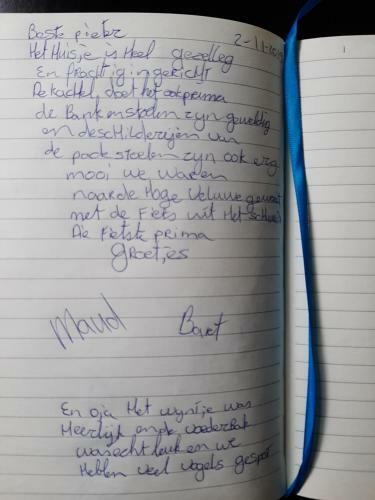 Beste pieter
2-11-2019
Het Huisje is Heel gezelleg
En prachtig ingericht
De kachtel doet het ook prima
de Bank en stoelen zyn geweldig
en de schilderijen van
de padestoelen zyn ook erg
mooi we waren
naar de Hoge Veluwe geweest
met de Fiets uit Het schuur
Die Fietste prima
Groetjes
Maud Bart
En oja Het wyntje was
Heerlijk en de voederbak
was echt leuk en we
Hebben veel vogels gespot